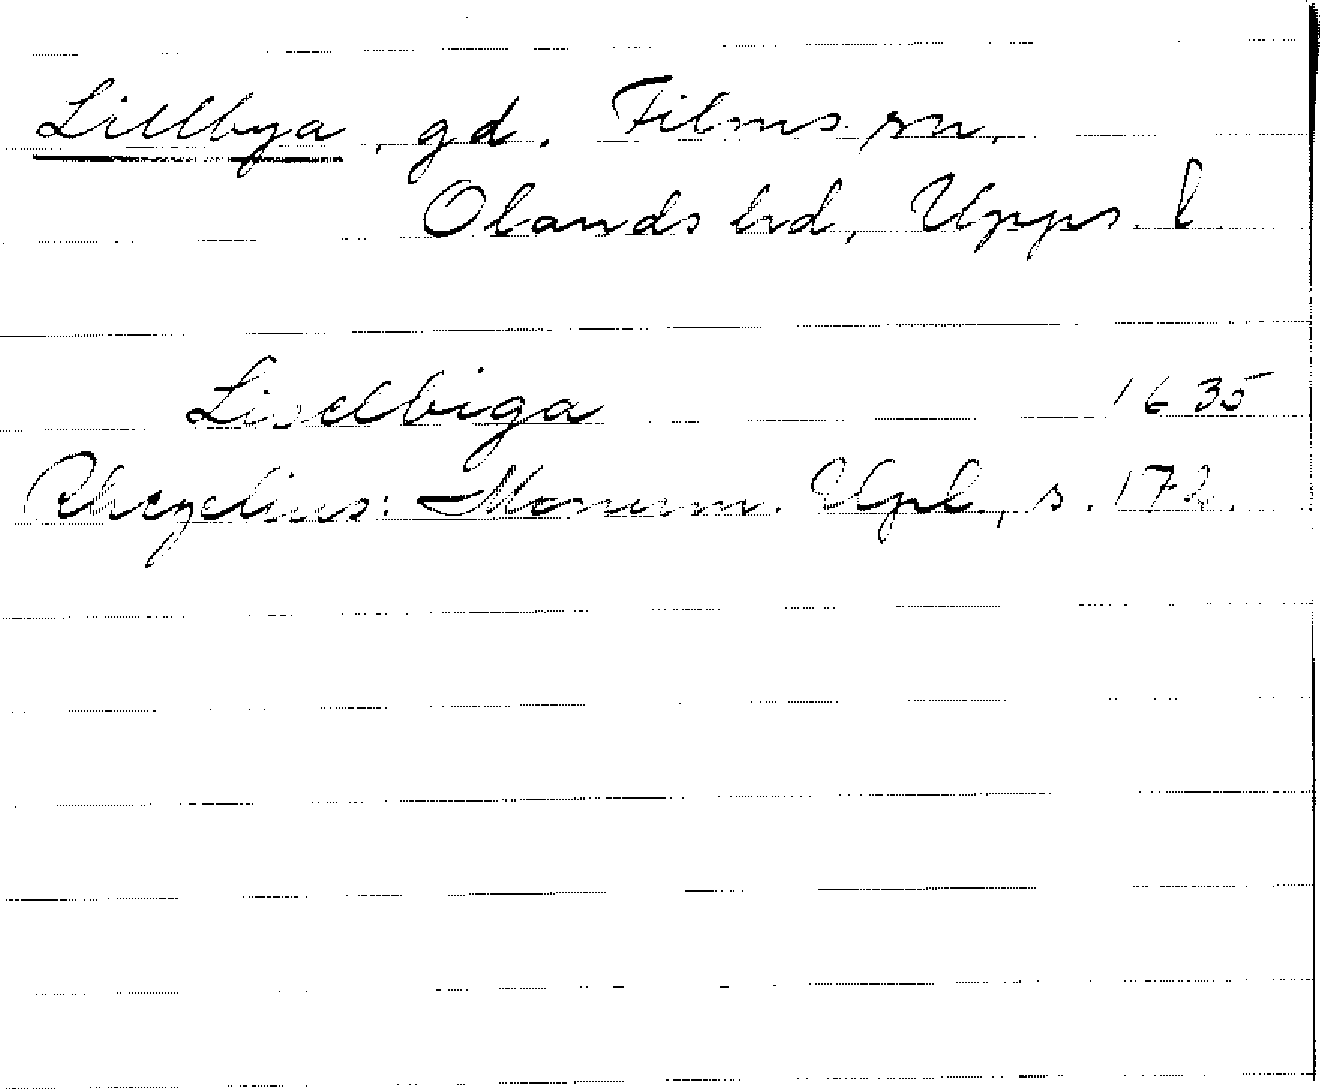 Lillbya, gd. Films sn,
Olands hd, Upps. l.
Lisslbiga 1635
Rhezelius: Monum. Upl., s. 172.